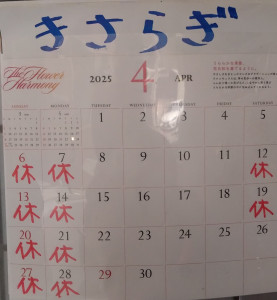 きさらぎ
The Flower Harmony
2025 4 APR
SUNDAY MONDAY TUESDAY WEDNESDAY THURSDAY FRIDAY SATURDAY
1 2 3 4 5
6 7 8 9 10 11 12
休 休 休
13 14 15 16 17 18 19
休 休 休
20 21 22 23 24 25 26
休 休
27 28 29 30
休 休